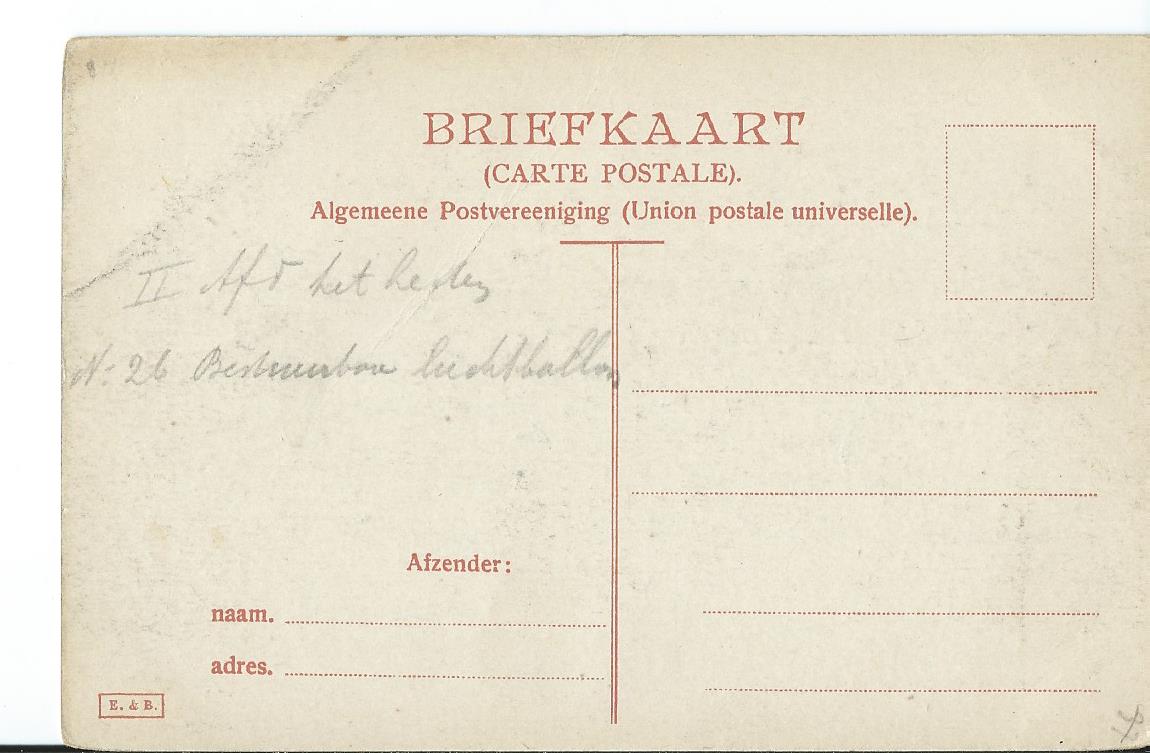 BRIEFKAART
(CARTE POSTALE).
Algemeene Postvereeniging (Union postale universelle).
II Afd het heden
N: 26 Bestuurbare luchtballon
Afzender:
naam.
adres.
E. & B.